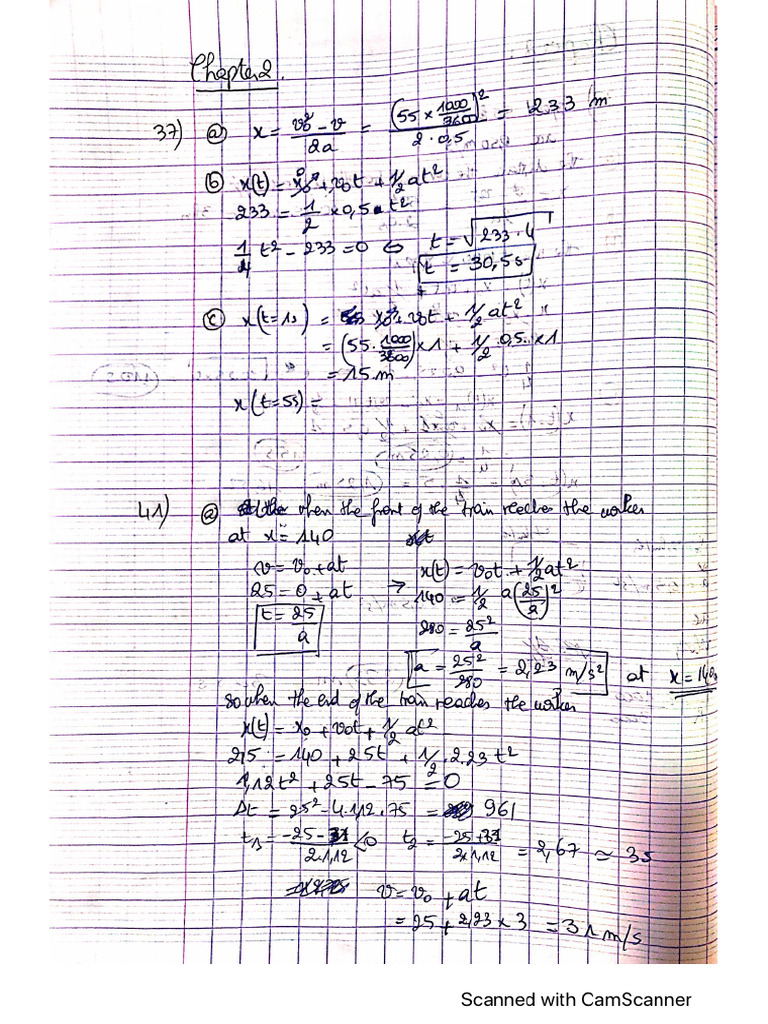 Chapter 2.
37) ⓐ x = (v0² - v)/2a = (55 × 1000/3600)²/(2 · 0,5) = 233 m
ⓑ x(t) = x0 + v0t + 1/2 at²
233 = 1/2 × 0,5 t²
1/4 t² - 233 = 0 ⇔ t = √(233 · 4)
t = 30,5s
ⓒ x(t=1s) = x0 + v0t + 1/2 at²
= (55 · 1000/3600) × 1 + 1/2 · 0,5 × 1
= 15 m
x(t=5s) =
41) ⓐ when the front of the train reaches the worker
at x = 140
v = v0 + at
x(t) = v0t + 1/2 at²
25 = 0 + at → 140 = 1/2 a (25/a)²
t = 25/a
280 = 25²/a
a = 25²/280 = 2,23 m/s² at x = 140
so when the end of the train reaches the worker
x(t) = x0 + v0t + 1/2 at²
215 = 140 + 25t + 1/2 · 2.23 t²
1,12t² + 25t - 75 = 0
Δt = 25² - 4.1,12 · 75 = 961
t1 = (-25 - 31)/(2 × 1,12) < 0 t2 = (-25 + 31)/(2 × 1,12) = 2,67 ≃ 3s
v = v0 + at
= 25 + 2,23 × 3 = 31 m/s
Scanned with CamScanner